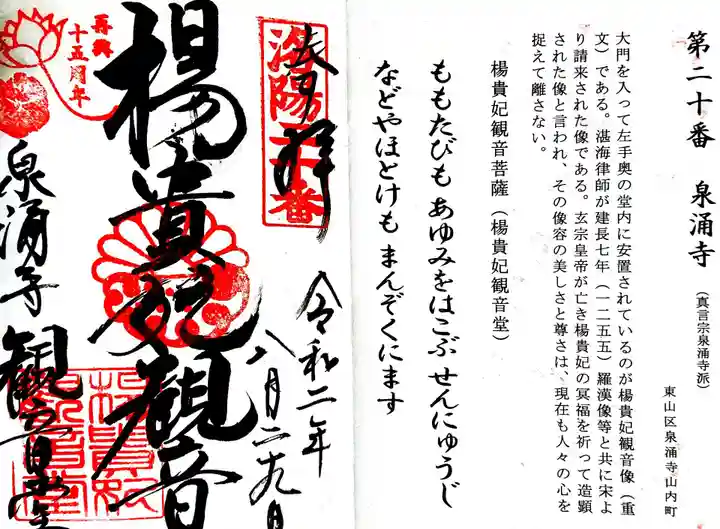 第二十番 泉涌寺
(真言宗泉涌寺派)
東山区泉涌寺山内町
大門を入って左手奥の堂内に安置されているのが楊貴妃観音像(重
文)である。湛海律師が建長七年(一二五五)羅漢像等と共に宋よ
り請来された像である。玄宗皇帝が亡き楊貴妃の冥福を祈って造顕
された像と言われ、その像容の美しさと尊さは、現在も人々の心を
捉えて離さない。
楊貴妃観音菩薩(楊貴妃観音堂)
ももたびも あゆみをはこぶ せんにゅうじ
などやほとけも まんぞくにます
奉拝
洛陽二十番
令和二年
八月二十九日
楊貴妃観音
再興
十五周年
泉涌寺 観音堂
楊貴妃
観音堂